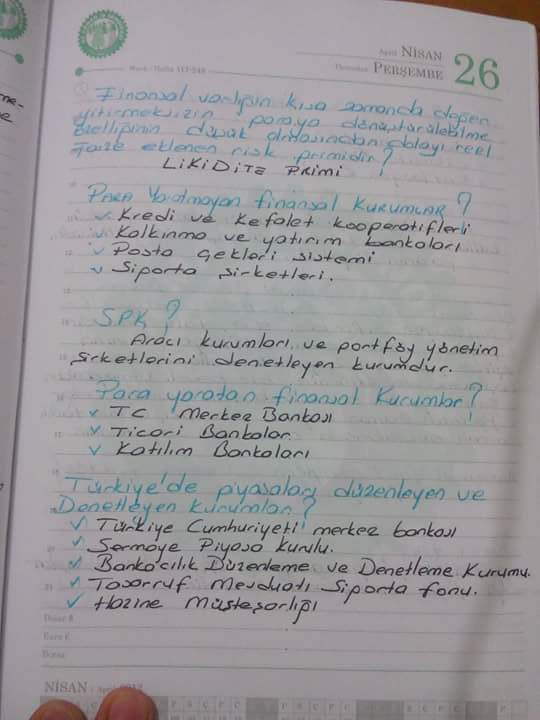 April NİSAN
Thursday PERŞEMBE 26
Week / Hafta 117-249
Finansal varlığın kısa zamanda değer
yitirmeksizin paraya dönüştürülebilme
özelliğinin düşük olmasından dolayı reel
faize eklenen risk primidir?
LİKİDİTE PRİMİ
PARA Yaratmayan finansal KURUMLAR ?
✓ Kredi ve kefalet kooperatifleri
✓ Kalkınma ve yatırım bankaları
✓ Posta çekleri sistemi
✓ Siporta şirketleri.
SPK ?
Aracı kurumları ve portföy yönetim
şirketlerini denetleyen kurumdur.
Para yaratan finansal Kurumlar ?
✓ TC Merkez Bankası
✓ Ticari Bankalar
✓ Katılım Bankaları
Türkiye'de piyasaları düzenleyen ve
Denetleyen kurumlar ?
✓ Türkiye Cumhuriyeti merkez bankası
✓ Sermaye Piyasa Kurulu.
✓ Bankacılık Düzenleme ve Denetleme Kurumu.
✓ Tasarruf Mevduatı Siporta fonu.
✓ Hazine Müsteşarlığı
Dolar $
Euro €
Borsa
NİSAN / April